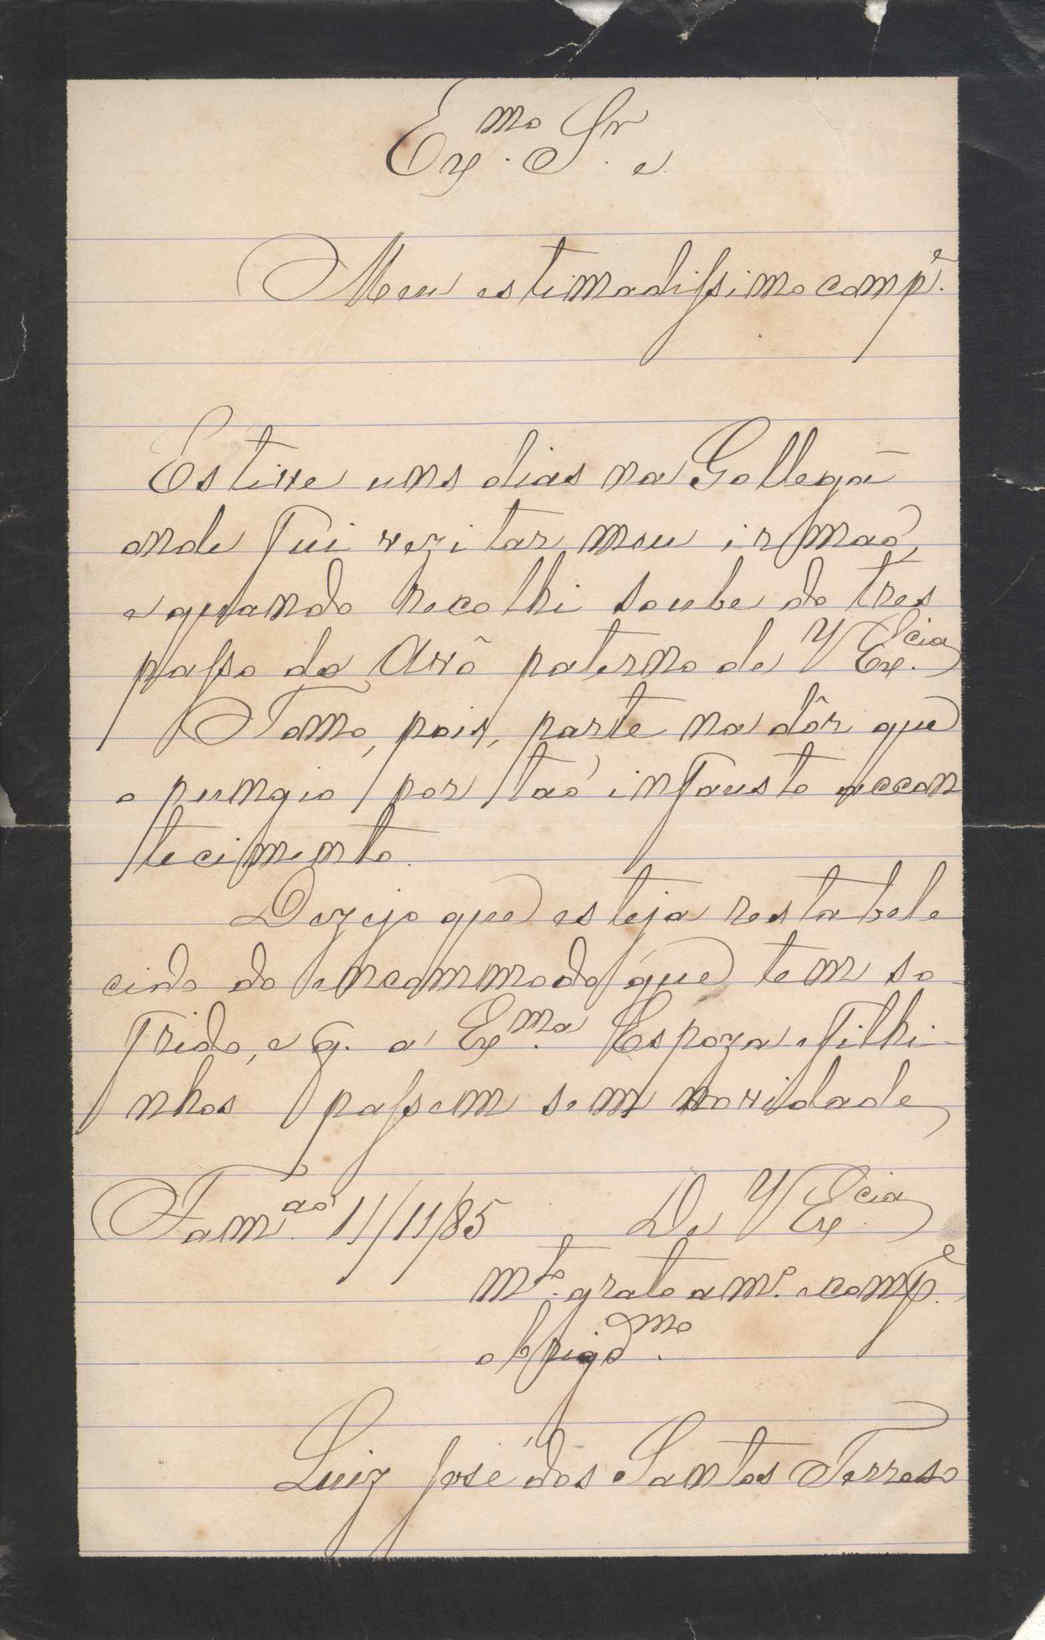 Ex.mo Sr. e
Meu estimadissimo comp.e
Estive uns dias na Gollegã
onde fui vezitar meu irmaõ,
e quando recolhi soube do tres
passo do Avô paterno de V Ex.cia
Tomo, pois, parte na dôr que
o pungio por taõ infausto accon
tecimento.
Dezejo que esteja restabele
cido do encommodo que tem so-
frido, e q. a Ex.ma Espoza e filhi-
nhos passem sem novidade
Tam.ao 11/11/85 De V Ex.cia
m.to grato am.o e comp.e
obrigd.mo
Luiz José dos Santos Terroso